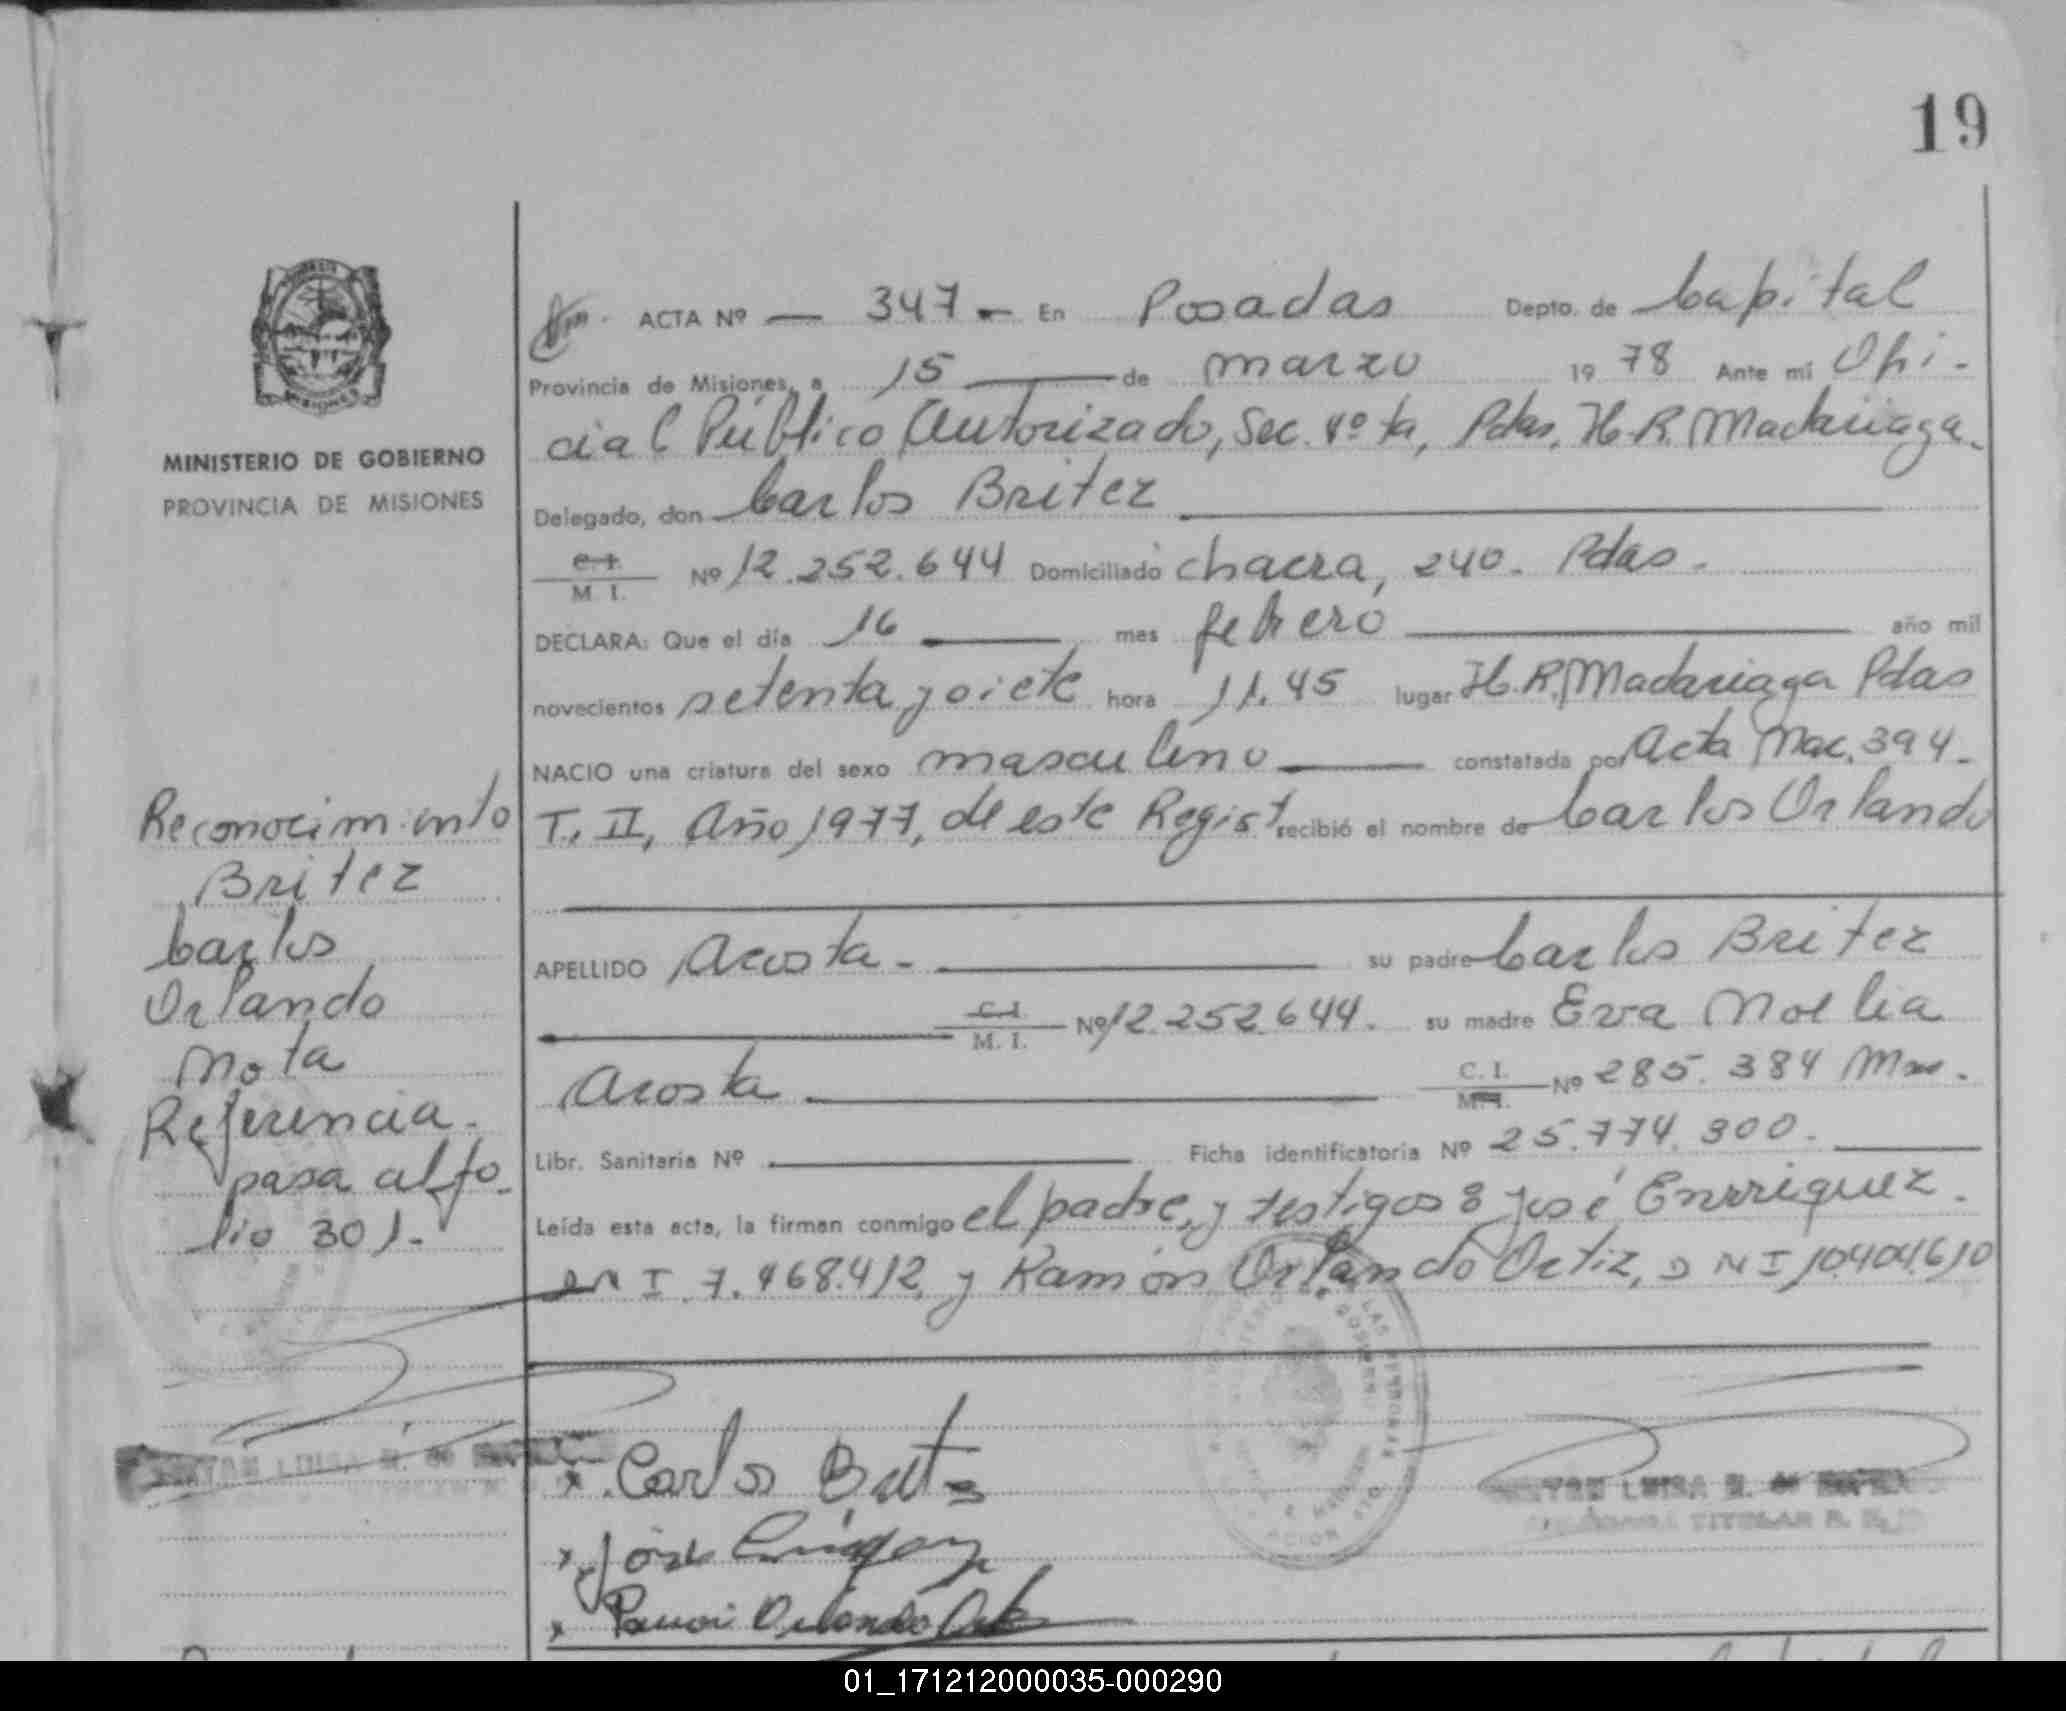 19
MINISTERIO DE GOBIERNO
PROVINCIA DE MISIONES
ACTA Nº — 347 — En Posadas Depto. de Capital
Provincia de Misiones, a 15 — de marzo 1978 Ante mi Ofi-
cial Público Autorizado, Sec. 4º ta, Pdas, H.R. Madariaga.
Delegado, don Carlos Britez
C. I. M. I. Nº 12.252.644 Domiciliado chacra, 240. Pdas.
DECLARA: Que el día 16 — mes febrero — año mil
novecientos setenta y siete hora 11.45 lugar H.R. Madariaga Pdas
NACIO una criatura del sexo masculino — constatada por Acta Nac. 394.
T. II, Año 1977, de este Regist. recibió el nombre de Carlos Orlando
APELLIDO Acosta - — su padre Carlos Britez
C. I. M. I. Nº 12.252.644. su madre Eva Noelia
Acosta — C. I. M. I. Nº 285.384 Mnes.
Libr. Sanitaria Nº — Ficha identificatoria Nº 25.774.300.
Leída esta acta, la firman conmigo el padre, y testigos: José Enrriquez.
DNI 7.468.412, y Ramón Orlando Ortiz, DNI 10.404.610
Reconocimiento
Britez
Carlos
Orlando
Nota
Referencia.
pasa al fo-
lio 301.
x Carlos Brites
x José
x Ramon Orlando Ortiz
LUISA
LUISA
TITULAR
01_171212000035-000290